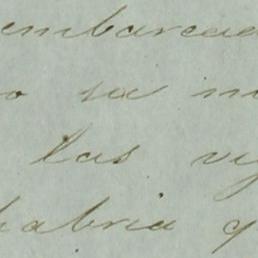 embarcad
o su m
las vi
habria q